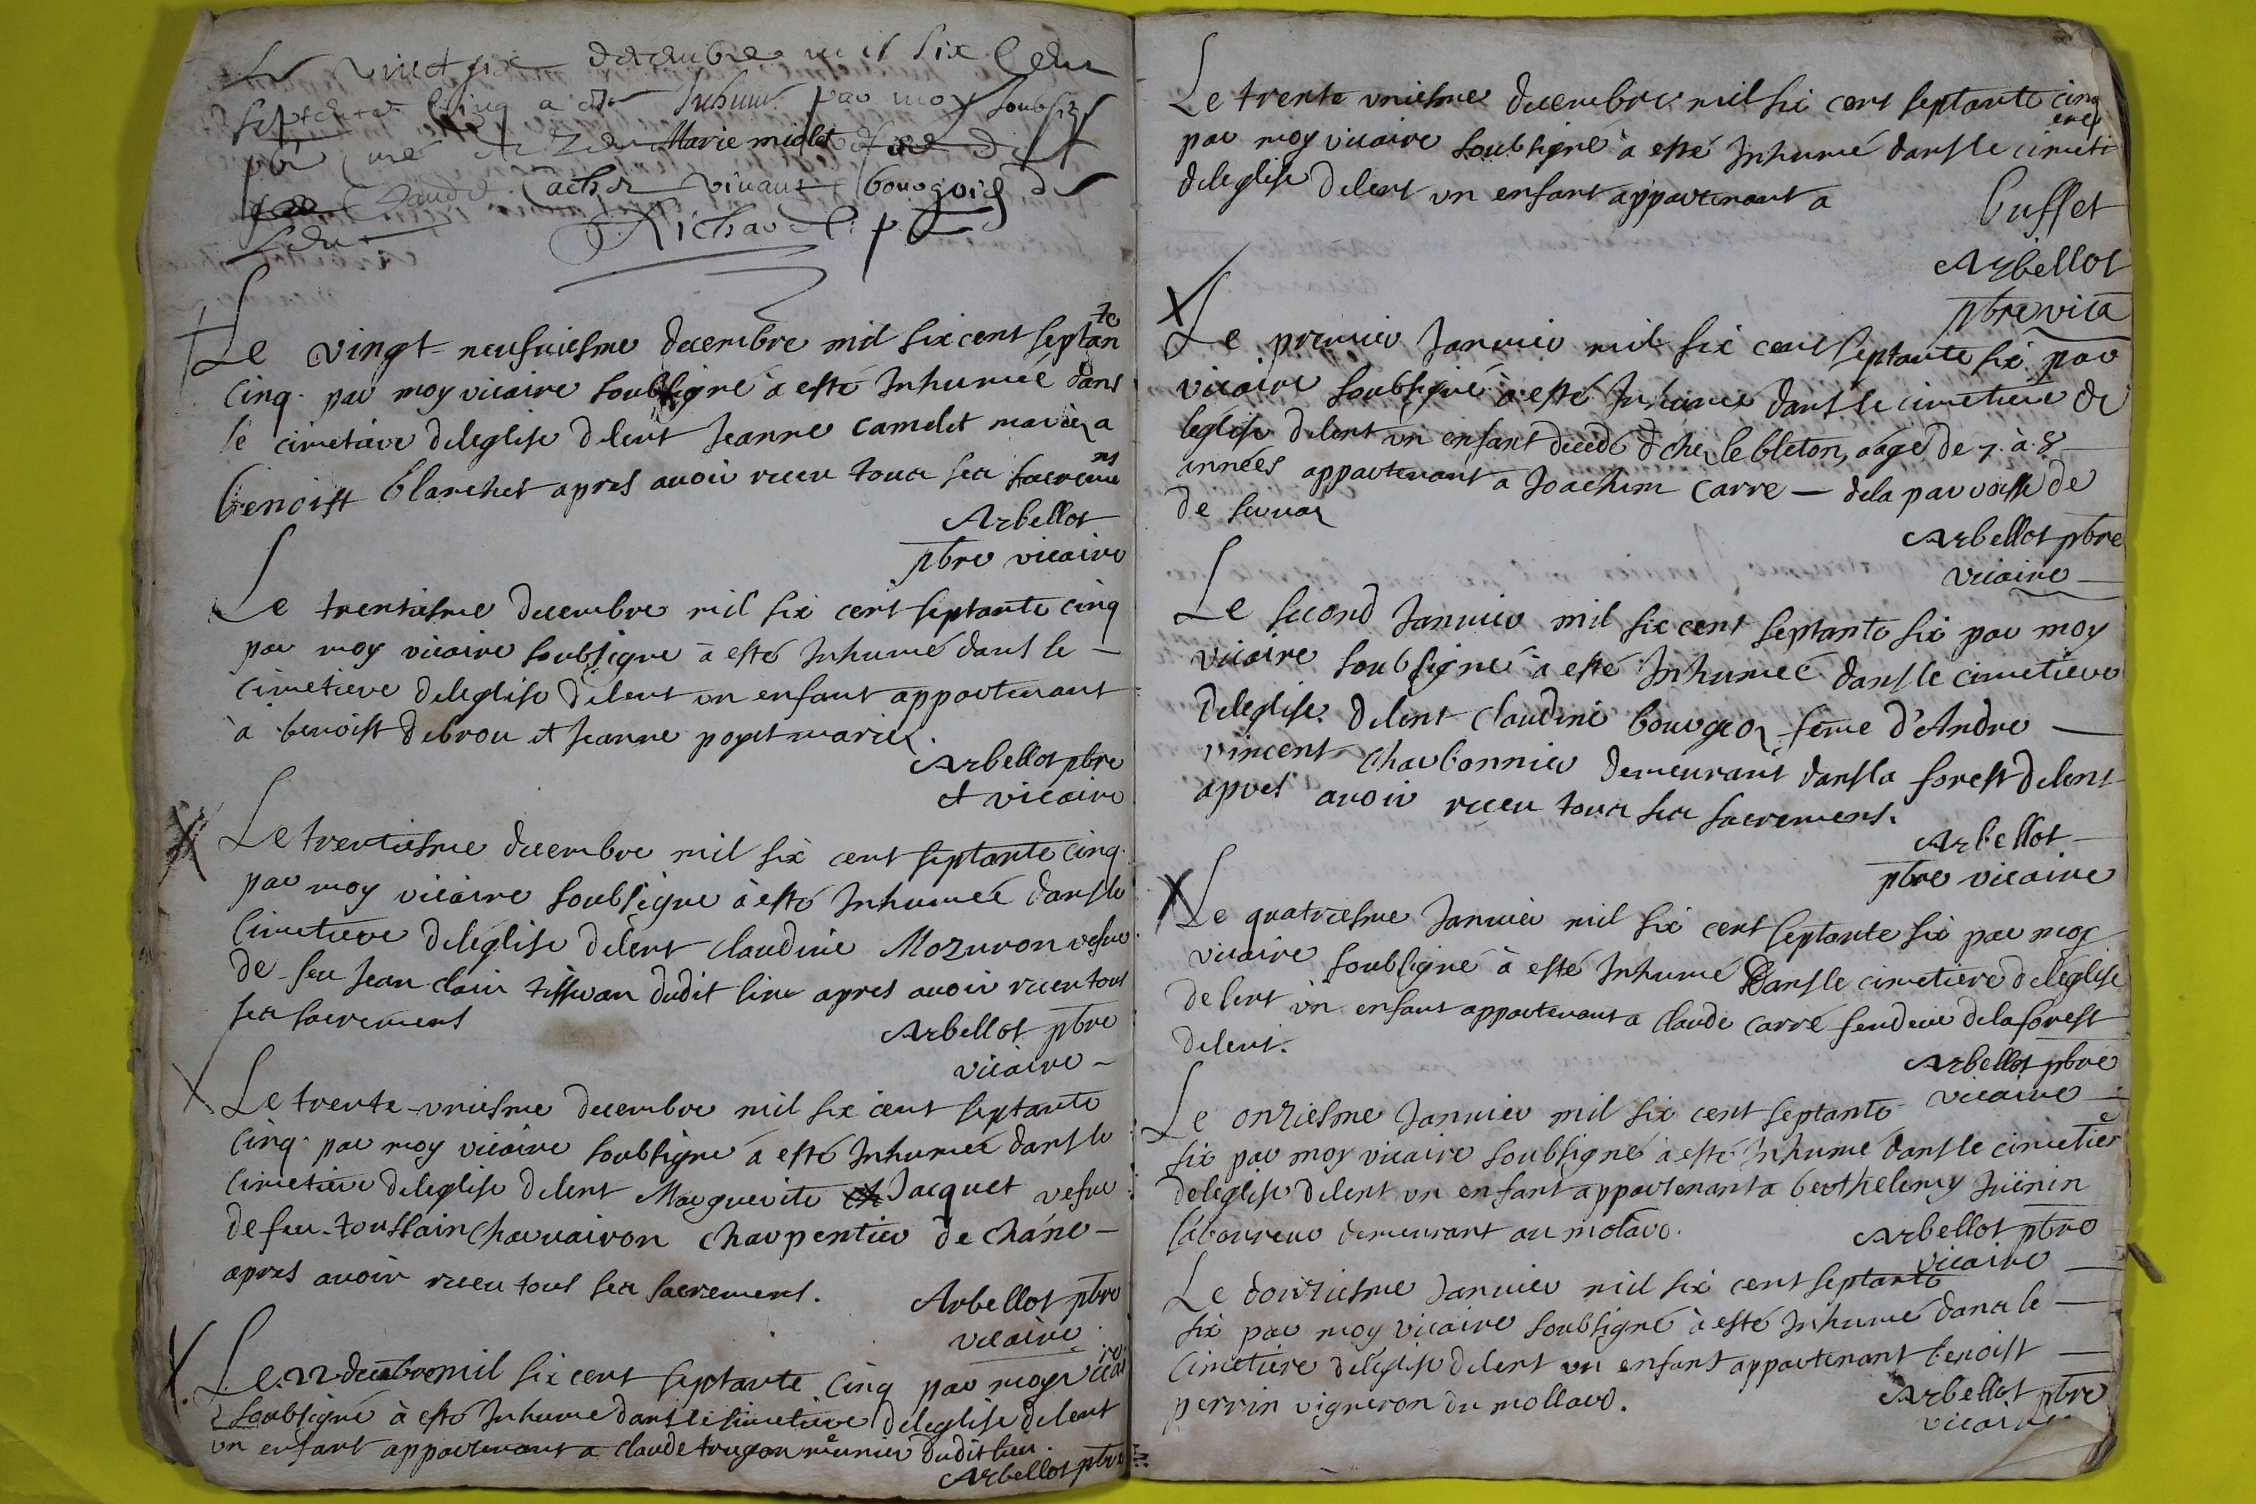 Le vinct six decembre mil six Cent
septente Cinq a este Inhumé par moy soubsig
pbr curé de Lent Marie miolet
Claude Cacher vivant bourgois de
Lent Richard p
Le vingt-neufuiesme decembre mil six cent septante
cinq par moy vicaire soubsigné a esté Inhumeé dans
le cimetiere deleglise delent Jeanne camelet marieз a
benoist blanchet apres auoir receu tous ses sacremens
Arbellot
pbre vicaire
Le trentiesme decembre mil six cent septante cinq
par moy vicaire soubsigne à esté Inhumé dans le
cimetiere deleglise delent un enfant appartenant
à benoist debrou et Jeanne poget mariez.
Arbellot pbre
et vicaire
Le trentiesme decembre mil six cent septante cinq.
par moy vicaire soubsigne à esté Inhumeé dans le
Cimetiere deleglise delent claudine Mozuron vefue
de feu Jean clair tissran dudit lieu apres auoir receu tous
ses sacremens
Arbellot pbre
vicaire
Le trente-vniesme decembre mil six cent septante
cinq par moy vicaire soubsigne à esté Inhumeé dans le
cimetiere deleglise delent Marguerite Jacquet vefue
de feu toussain Charvairon charpentier de chane
apres auoir receu tous ses sacremens.
Arbellot pbre
vicaire
Le.22 decembre mil six cent septante cinq par moy vicaire
soubsigné à esté Inhume dans le cimetiere deleglise delent
un enfant appartenant a claude trugon meunier dudit lieu.
Arbellot pbre
Le trente vniesme decembre mil six cent septante cinq
par moy vicaire soubsigné à esté Inhumé dans le cimetiere
deleglise delent un enfant appartenant a
buffet
Arbellot
pbre vica
Le premier Januier mil six cent septante six par
vicaire soubsigné à esté Inhumé dans le cimetiere de
leglise delent un enfant decedé chez le bleton, aagé de 7. à 8
années appartenant a Joachim Carre — dela parroisse de
de
Arbellot pbre
vicaire
Le second Januier mil six cent septante six par moy
vicaire soubsigné à esté Inhumeé dans le cimetiere
deleglise delent claudine bourgeoz feme d'Andre
vincent charbonnier demeurant dans la forest delent
apres auoir receu tous ses sacremens.
Arbellot
pbre vicaire
Le quatriesme Januier mil six cent septante six par moy
vicaire soubsigné à esté Inhumé dans le cimetiere deleglise
delent un enfant appartenant a claude carré fendeur dela forest
delent.
Arbellot pbre
vicaire
Le onziesme Januier mil six cent septante
six par moy vicaire soubsigné à esté Inhumé dans le cimetiere
deleglise delent un enfant appartenant a berthelemy Juënin
laboureur demeurant au molard.
Arbellot pbre
vicaire
Le douziesme Januier mil six cent septante
six par moy vicaire soubsigné à esté Inhumé dans le
cimetiere deleglise delent un enfant appartenant benoist
perrin vigneron du mollard.
Arbellot pbre
vicaire